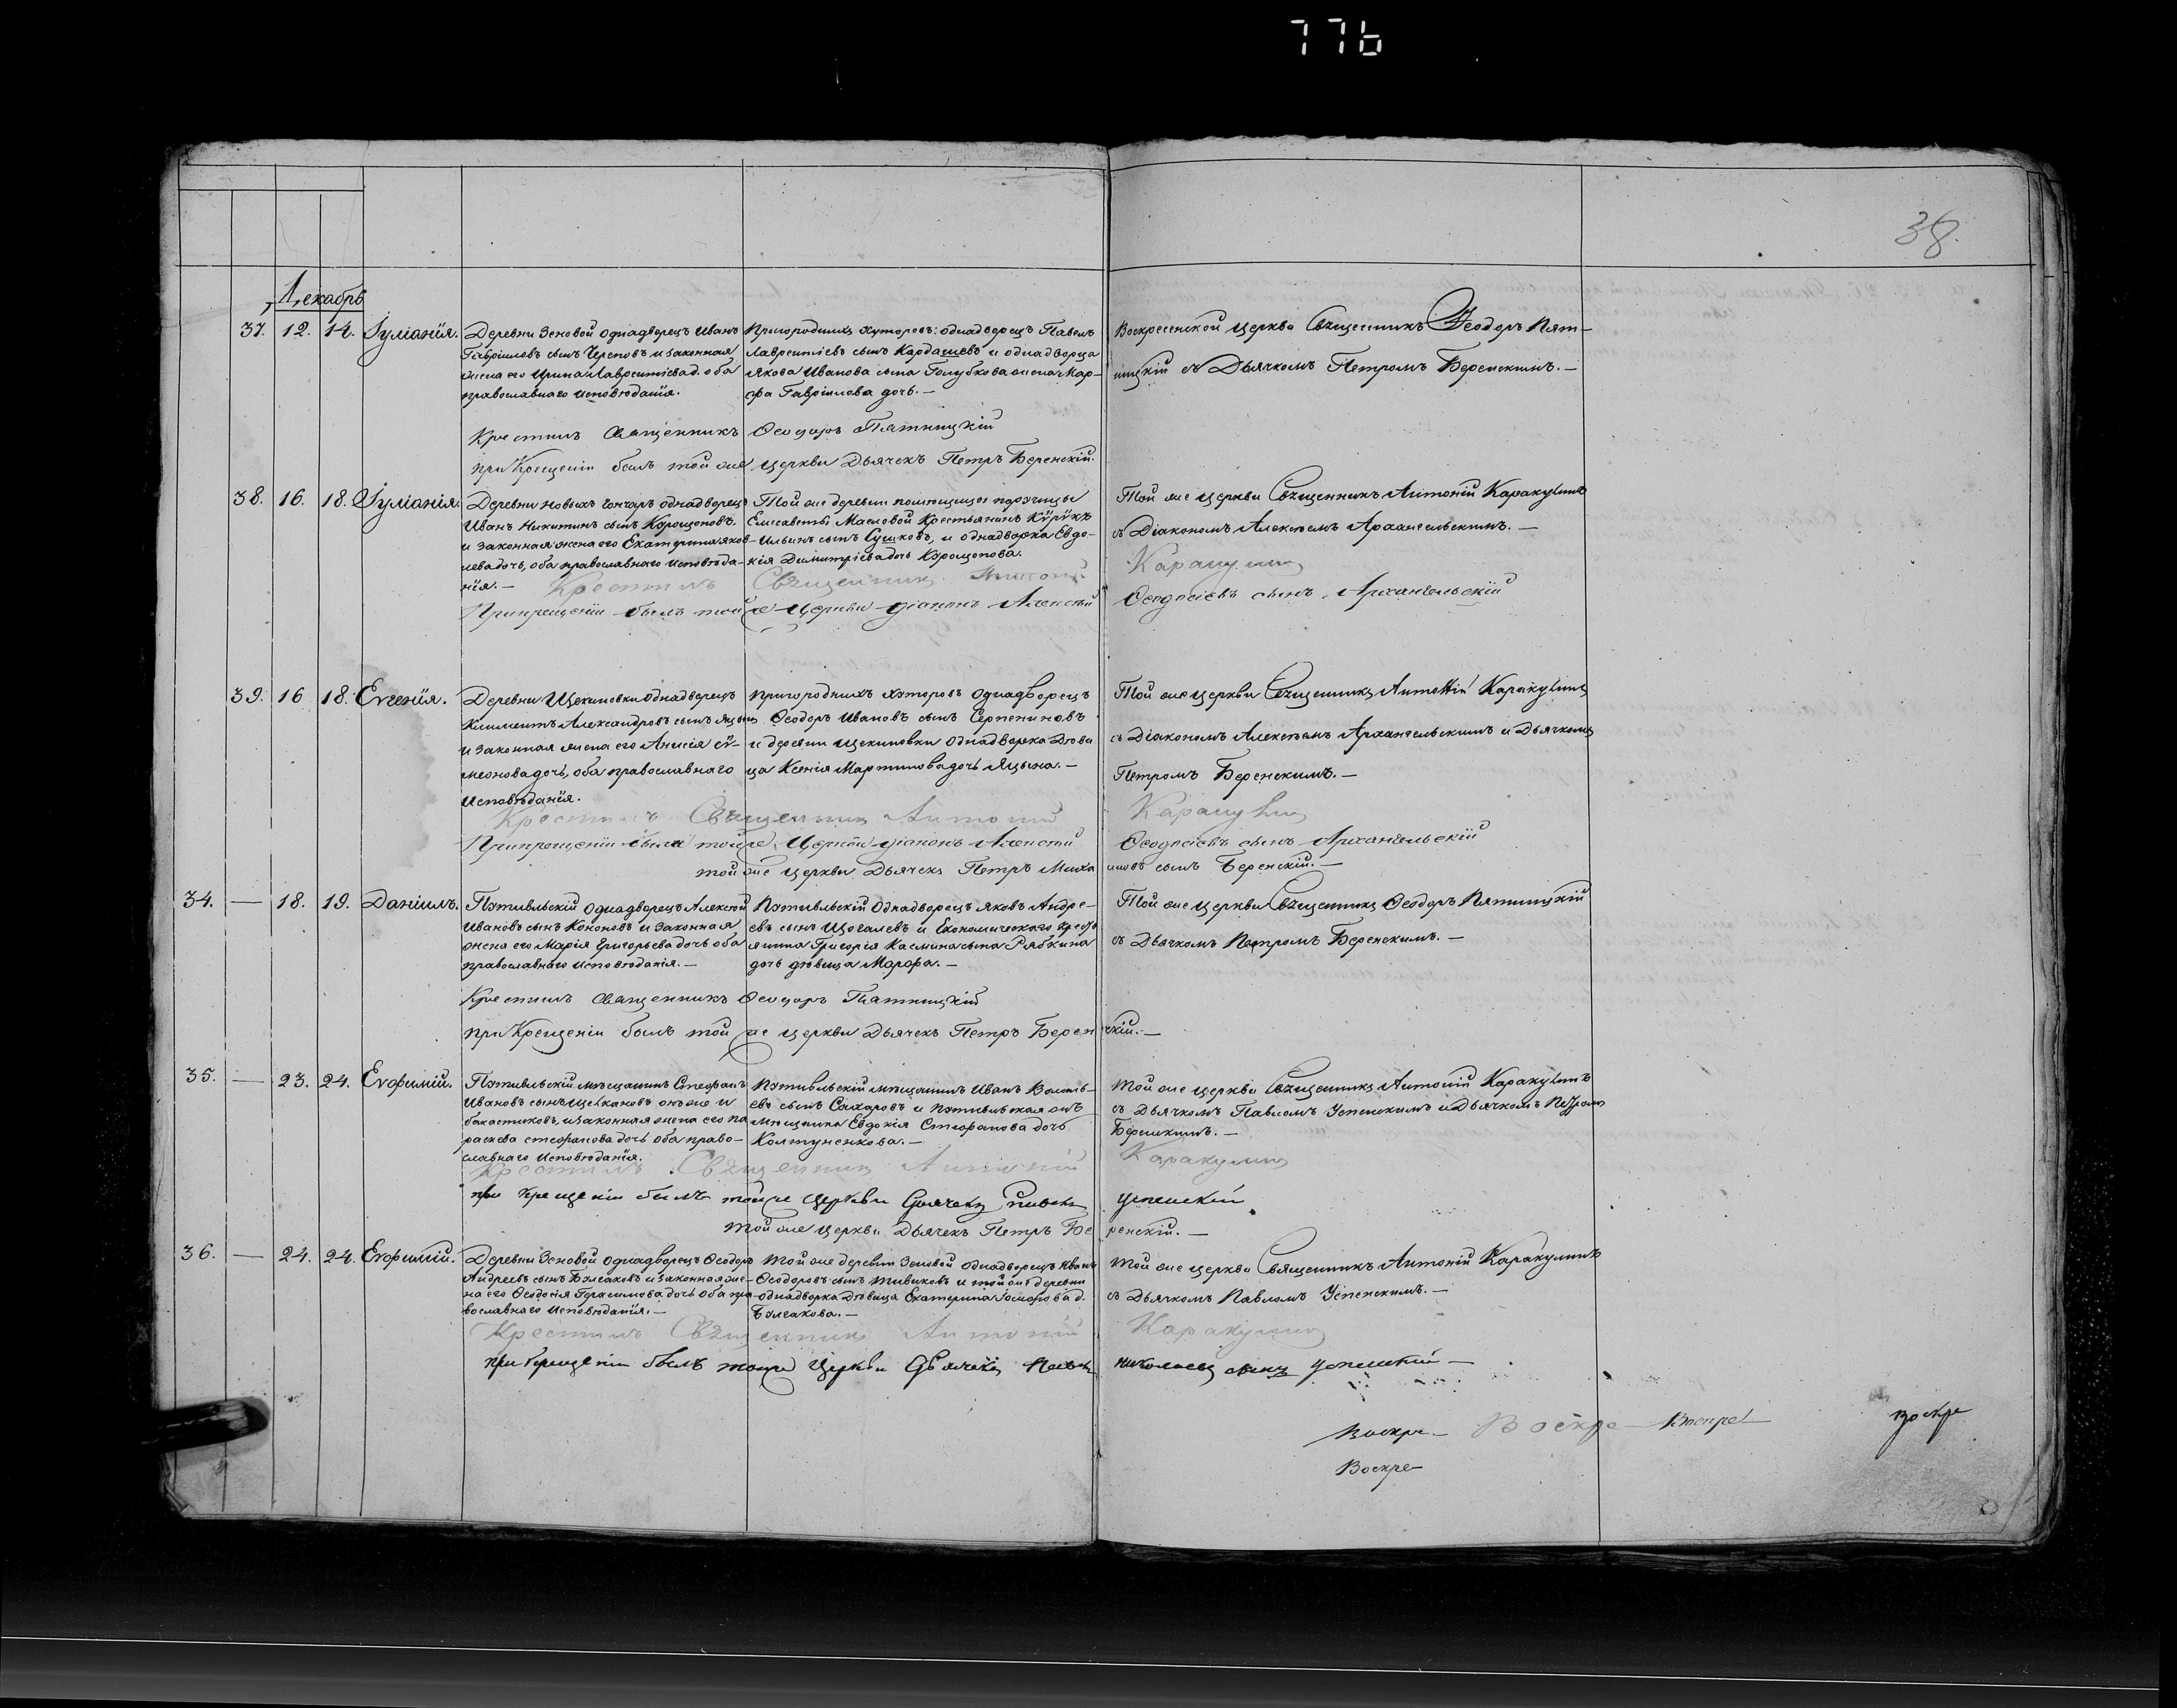 776
38.
Декабрь
37. 12. 14. Іуліанія.
Деревни Зеновой однадворецъ Иванъ
Гавріиловъ сынъ Череповъ и законная
жена его Ирина Лаврентіева д. оба
православнаго исповѣданія.
Пригородныхъ хуторовъ: однадворецъ Павелъ
Лаврентіевъ сынъ Кардашевъ и однадворца
Якова Иванова сына Голубкова жена Мар-
фа Гавріилова дочь.—
Воскресенской церкви Священникъ Ѳеодоръ Пят-
ницкій съ Дьячкомъ Петромъ Беренскимъ.—
Крестилъ Священникъ Ѳеодоръ Пятницкій
при Крещеніи былъ той же церкви Дьячекъ Петръ Беренскій.
38. 16. 18. Іуліанія.
Деревни Новыхъ Гончаръ однадворецъ
Иванъ Никитинъ сынъ Корощоповъ
и законная жена его Екатерина Яков-
лева дочь, оба православнаго исповѣда-
нія.—
Той же деревни помѣщицы порутчицы
Елисаветы Масловой Крестьянинъ
Ильинъ сынъ Сушковъ, и однадворка Евдо-
кія Димитріева дочь Корощопова.
Той же церкви Священникъ Антоній Каракулинъ
съ Діакономъ Алексѣемъ Архангельскимъ.—
Крестилъ Священникъ Антоній Каракулинъ
При крещеніи былъ тойже Церкви діаконъ Алексѣй Ѳеодосіевъ сынъ Архангельскій
39. 16 18. Евгенія.
Деревни Щекиновки однадворецъ
Климентъ Александровъ сынъ Яцынъ
и законная жена его Анисія Сѵ-
меонова дочь, оба православнаго
исповѣданія.
Пригородныхъ хуторовъ однадворецъ
Ѳеодоръ Ивановъ сынъ Серпениновъ
и деревни Щекиновки однадворка дѣви
ца Ксенія Мартинова дочь Яцына.—
Той же церкви Священникъ Антоній Каракулинъ
съ Діакономъ Алексѣемъ Архангельскимъ и Дьячкомъ
Петромъ Беренскимъ.—
Крестилъ Священникъ Антоній Каракулинъ
При крещеніи были тойже Церкви діаконъ Алексѣй Ѳеодосіевъ сынъ Архангельскій
той же церкви Дьячекъ Петръ Миха иловъ сынъ Беренскій.—
34. — 18. 19. Даніилъ.
Путивльскій однадворецъ Алексѣй
Ивановъ сынъ Кононовъ и законная
жена его Марія Григорьева дочь оба
православнаго исповѣданія.—
Путивльскій однадворецъ Яковъ Андре-
евъ сынъ Щоголевъ и Економическаго крестья
янина Григорія Касмина сына Рябкина
дочь дѣвица Марфа.—
Той же церкви Священникъ Ѳеодоръ Пятницкій
съ Дьячкомъ Петромъ Беренскимъ.—
Крестилъ Священникъ Ѳеодоръ Пятницкій
при Крещеніи былъ той же церкви Дьячекъ Петръ Берен скій.—
35. — 23. 24. Евфимій.
Путивльскій мѣщанинъ Стефанъ
Ивановъ сынъ Щелкановъ онъ же и
бакастиковъ, и законная жена его Па
раскева Стефанова дочь оба право-
славнаго исповѣданія.
Путивльскій мѣщанинъ Иванъ Василь-
евъ сынъ Сахаровъ и путивльская
мѣщанка Евдокія Стефанова дочь
Колтуненкова.—
Той же церкви Священникъ Антоній Каракулинъ
съ Дьячкомъ Павломъ Успенскимъ и Дьячкомъ Петромъ
Беренскимъ.—
Крестилъ Священникъ Антоній Каракулинъ
при крещеніи былъ тойже Церкви Дьячекъ Павелъ Успенскій
той же церкви Дьячекъ Петръ Бе ренскій.—
36. — 24. 24. Евфимій.
Деревни Зеновой однадворецъ Ѳеодоръ
Андреевъ сынъ Булгаковъ и законная же-
на его Ѳеодосія Герасимова дочь оба пра-
вославнаго исповѣданія.—
Той же деревни Зеновой однадворецъ Иванъ
Ѳеодоровъ сынъ Тивиковъ и той же деревни
однадворка дѣвица Екатерина д.
Булгакова.—
Той же церкви Священникъ Антоній Каракулинъ
съ Дьячкомъ Павломъ Успенскимъ.—
Крестилъ Священникъ Антоній Каракулинъ
при крещеніи былъ тойже Церкви Дьячекъ Павелъ Николаевъ сынъ Успенскій—
Воскре— Воскре— Воскре— Воскре
Воскре—